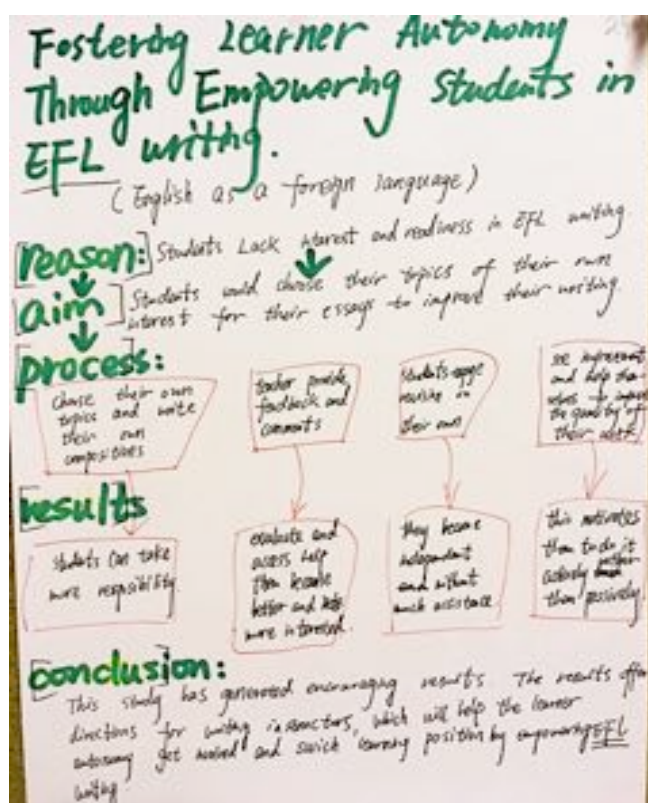 Fostering Learner Autonomy
Through Empowering Students in
EFL writing.
(English as a foreign language)
reason: Students Lack interest and readiness in EFL writing.
aim Students would choose their topics of their own
interest for their essays to improve their writing.
process:
Choose their own
topics and write
their own
compositions
teacher provide
feedback and
comments
Students engage
revising on
their own
see improvement
and help them
selves to improve
the quality of
their work
results
students can take
more responsibility
evaluate and
assess help
them become
better and
more interested.
they become
independent
and without
much assistance.
this motivates
them to do it
actively rather
than passively.
conclusion:
This study has generated encouraging results. The results offer
directions for writing instructors, which will help the learner
autonomy get and learning position by empowering EFL
writing